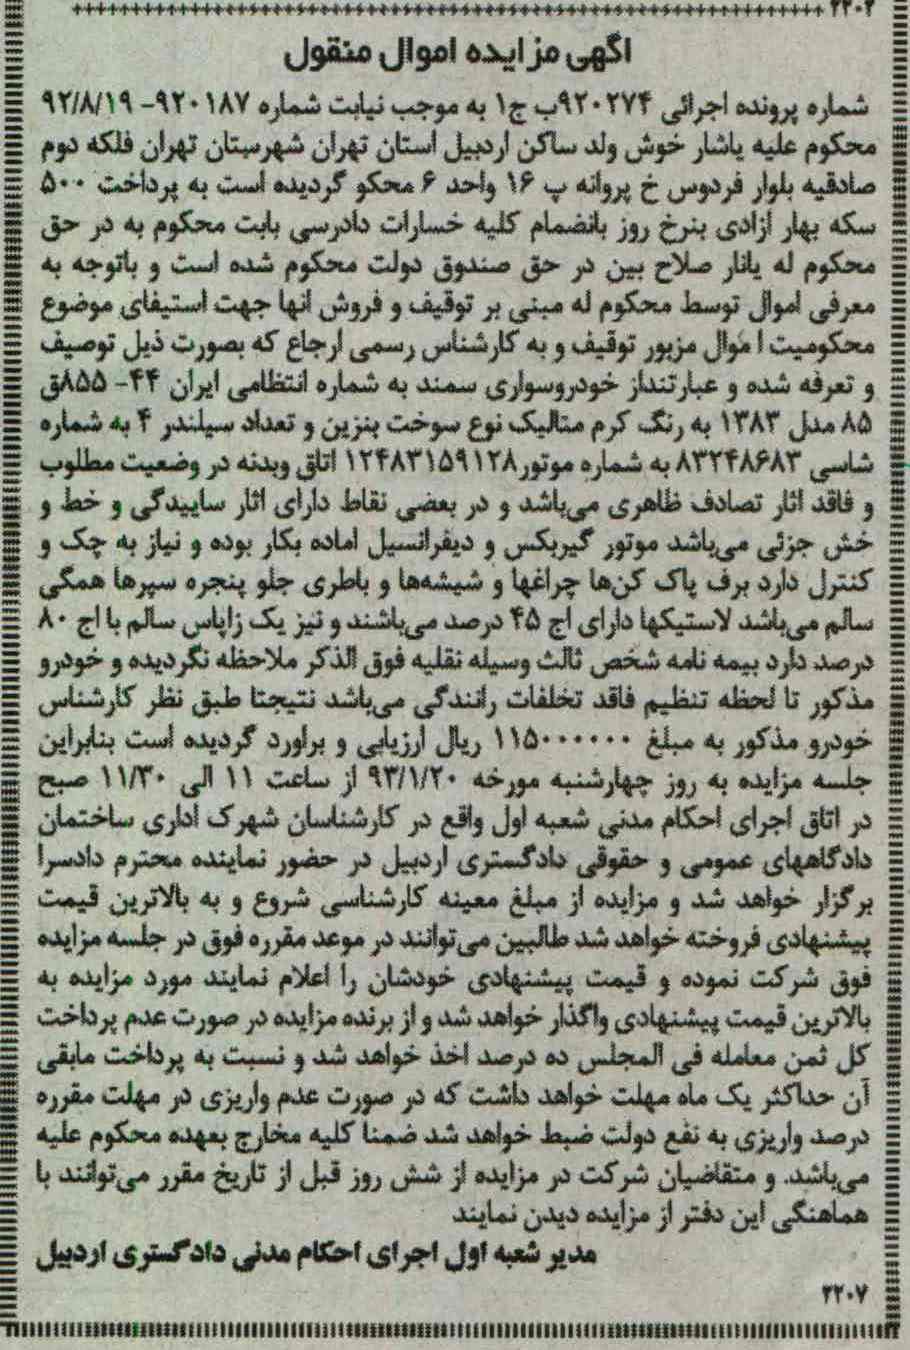 ۲۲۰۲
اگهی مزایده اموال منقول
شماره پرونده اجرائی ۹۲۰۲۷۴ب ج۱ به موجب نیابت شماره ۹۲۰۱۸۷- ۹۲/۸/۱۹
محکوم علیه یاشار خوش ولد ساکن اردبیل استان تهران شهرستان تهران فلکه دوم
صادقیه بلوار فردوس خ پروانه پ ۱۶ واحد ۶ محکو گردیده است به پرداخت ۵۰۰
سکه بهار ازادی بنرخ روز بانضمام کلیه خسارات دادرسی بابت محکوم به در حق
محکوم له یانار صلاح بین در حق صندوق دولت محکوم شده است و باتوجه به
معرفی اموال توسط محکوم له مبنی بر توقیف و فروش انها جهت استیفای موضوع
محکومیت اموال مزبور توقیف و به کارشناس رسمی ارجاع که بصورت ذیل توصیف
و تعرفه شده و عبارتنداز خودروسواری سمند به شماره انتظامی ایران ۴۴- ۸۵۵ق
۸۵ مدل ۱۳۸۳ به رنگ کرم متالیک نوع سوخت بنزین و تعداد سیلندر ۴ به شماره
شاسی ۸۳۲۴۸۶۸۳ به شماره موتور۱۲۴۸۳۱۵۹۱۲۸ اتاق وبدنه در وضعیت مطلوب
و فاقد اثار تصادف ظاهری می‌باشد و در بعضی نقاط دارای اثار ساییدگی و خط و
خش جزئی می‌باشد موتور گیربکس و دیفرانسیل اماده بکار بوده و نیاز به چک و
کنترل دارد برف پاک کن‌ها چراغها و شیشه‌ها و باطری جلو پنجره سپرها همگی
سالم می‌باشد لاستیکها دارای اج ۴۵ درصد می‌باشند و نیز یک زاپاس سالم با اج ۸۰
درصد دارد بیمه نامه شخص ثالث وسیله نقلیه فوق الذکر ملاحظه نگردیده و خودرو
مذکور تا لحظه تنظیم فاقد تخلفات رانندگی می‌باشد نتیجتا طبق نظر کارشناس
خودرو مذکور به مبلغ ۱۱۵۰۰۰۰۰۰ ریال ارزیابی و براورد گردیده است بنابراین
جلسه مزایده به روز چهارشنبه مورخه ۹۳/۱/۲۰ از ساعت ۱۱ الی ۱۱/۳۰ صبح
در اتاق اجرای احکام مدنی شعبه اول واقع در کارشناسان شهرک اداری ساختمان
دادگاههای عمومی و حقوقی دادگستری اردبیل در حضور نماینده محترم دادسرا
برگزار خواهد شد و مزایده از مبلغ معینه کارشناسی شروع و به بالاترین قیمت
پیشنهادی فروخته خواهد شد طالبین می‌توانند در موعد مقرره فوق در جلسه مزایده
فوق شرکت نموده و قیمت پیشنهادی خودشان را اعلام نمایند مورد مزایده به
بالاترین قیمت پیشنهادی واگذار خواهد شد و از برنده مزایده در صورت عدم پرداخت
کل ثمن معامله فی المجلس ده درصد اخذ خواهد شد و نسبت به پرداخت مابقی
آن حداکثر یک ماه مهلت خواهد داشت که در صورت عدم واریزی در مهلت مقرره
درصد واریزی به نفع دولت ضبط خواهد شد ضمنا کلیه مخارج بعهده محکوم علیه
می‌باشد. و متقاضیان شرکت در مزایده از شش روز قبل از تاریخ مقرر می‌توانند با
هماهنگی این دفتر از مزایده دیدن نمایند
مدیر شعبه اول اجرای احکام مدنی دادگستری اردبیل
۲۲۰۷